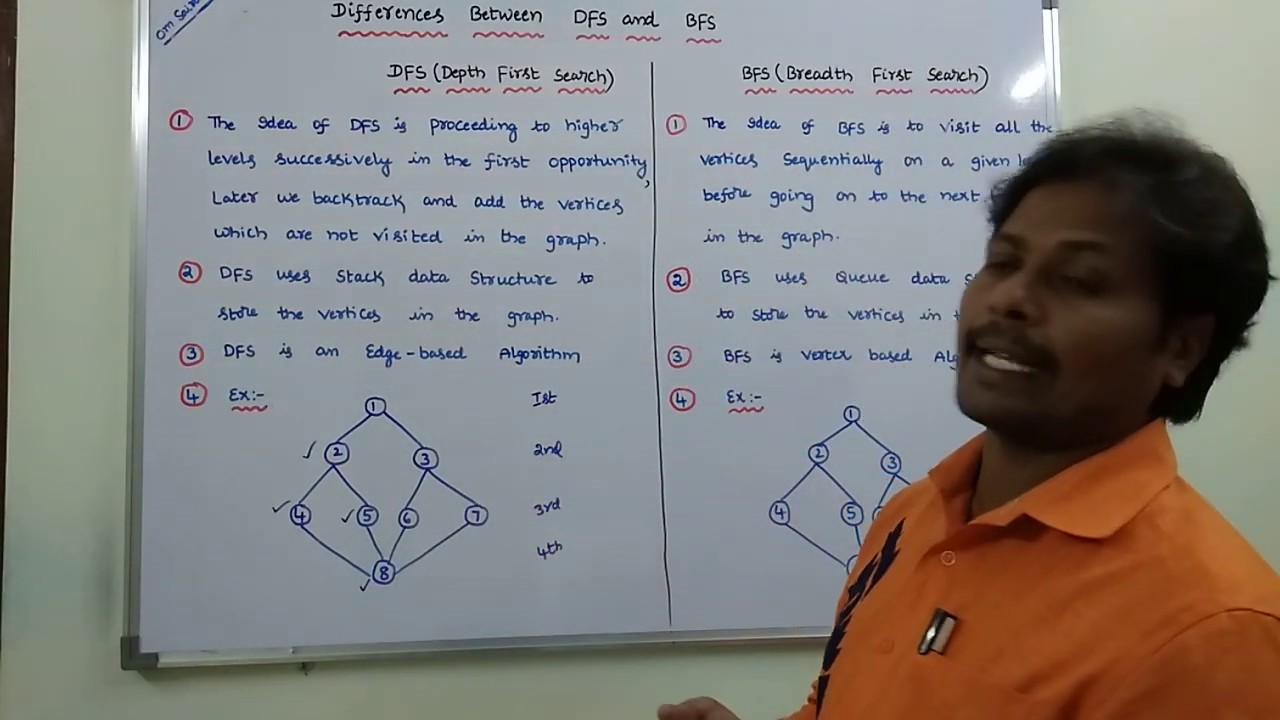 Om Sai
Differences Between DFS and BFS
DFS (Depth First Search)
① The idea of DFS is proceeding to higher
levels successively in the first opportunity,
Later we backtrack and add the vertices
which are not visited in the graph.
② DFS uses Stack data Structure to
store the vertices in the graph.
③ DFS is an Edge-based Algorithm
④ Ex:-
1 Ist
2 3 2nd
4 5 6 7 3rd
8 4th
BFS (Breadth First Search)
① The idea of BFS is to visit all the
vertices Sequentially on a given
before going on to the next
in the graph.
② BFS uses Queue data
to store the vertices in
③ BFS is verter based
④ Ex:-
1
2 3
4 5